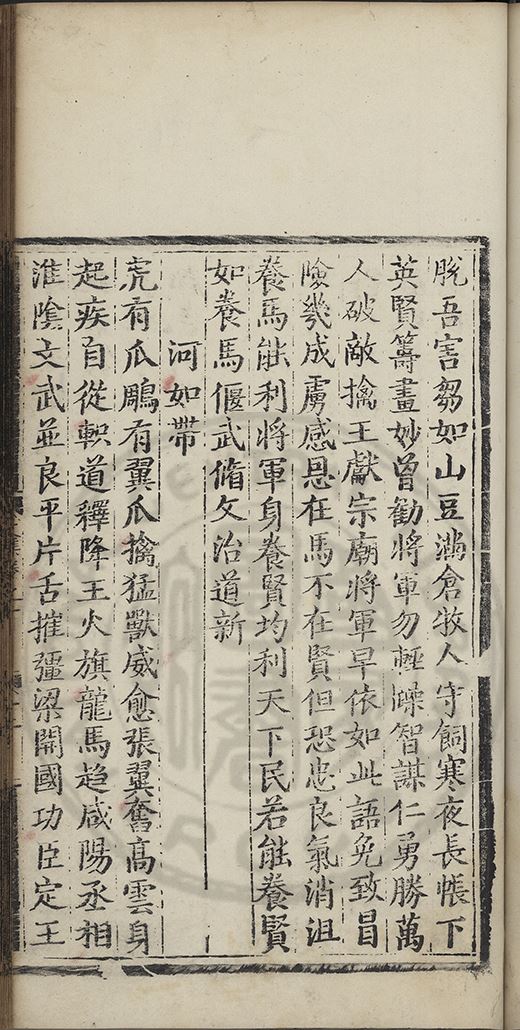 脫吾害芻如山豆滿倉牧人守飼寒夜長帳下
英賢籌畫妙曾勸將軍勿輕躁智謀仁勇勝萬
人破敵擒王獻宗廟將軍早依如此語免致冒
險幾成虜感恩在馬不在賢但恐忠良氣消沮
養馬能利將軍身養賢均利天下民若能養賢
如養馬偃武脩文治道新
河如帶
虎有爪鵰有翼爪擒猛獸威愈張翼奮高雲身
起疾自從軹道釋降王火旗龍馬趋咸陽丞相
淮隂文武並良平片舌摧彊梁開國功臣定王